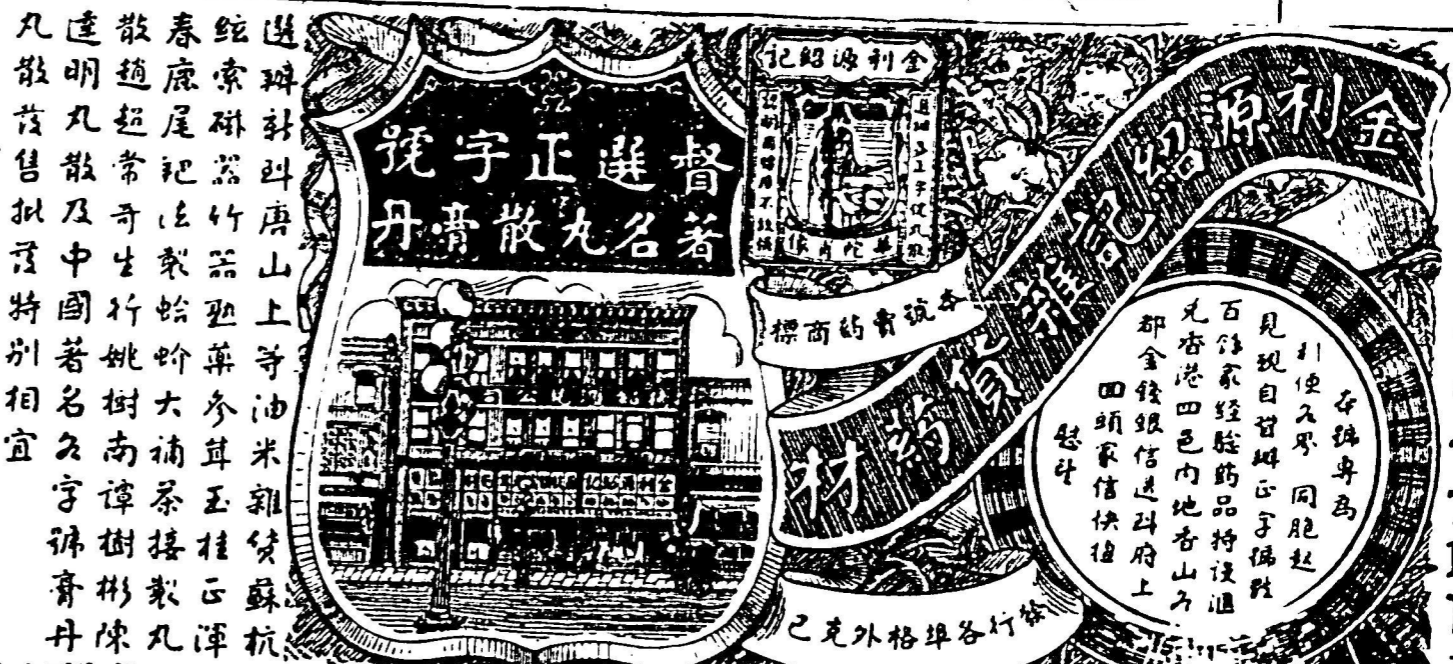 金利源紹記雜貨药材
本號專為
利便各界 同胞起
見現自督辦正字號熟
百餘家经驗药品特设滙
兑香港四邑内地香山各
都金錢銀信送到府上
回頭家信快捷
金利源紹記
華陀肖像
本號賣药商標
發行各埠格外克已
督選正字號
著名丸散膏丹
金利源紹記
選辦新到唐山上等油米雜貨蘇杭
絃索磁器竹器熟藥参茸玉桂正渾
春鹿尾𧿹法製蛤蚧大補茶接製丸
散趙超常哥生行姚樹南譚樹彬陳
達明丸散及中國著名各字號膏丹
丸散發售批發特别相宜